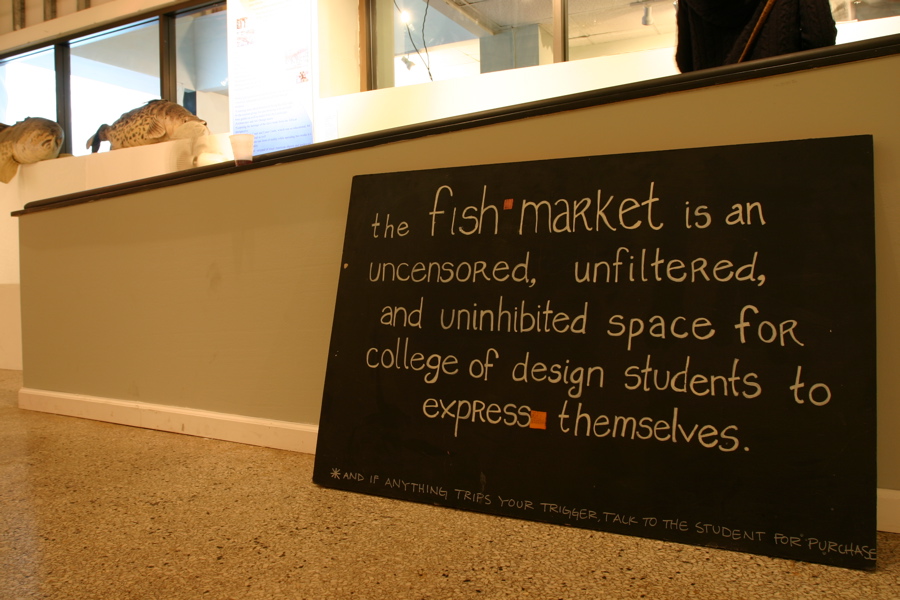 the fish market is an
uncensored, unfiltered,
and uninhibited space for
college of design students to
express themselves.
*AND IF ANYTHING TRIPS YOUR TRIGGER, TALK TO THE STUDENT FOR PURCHASE